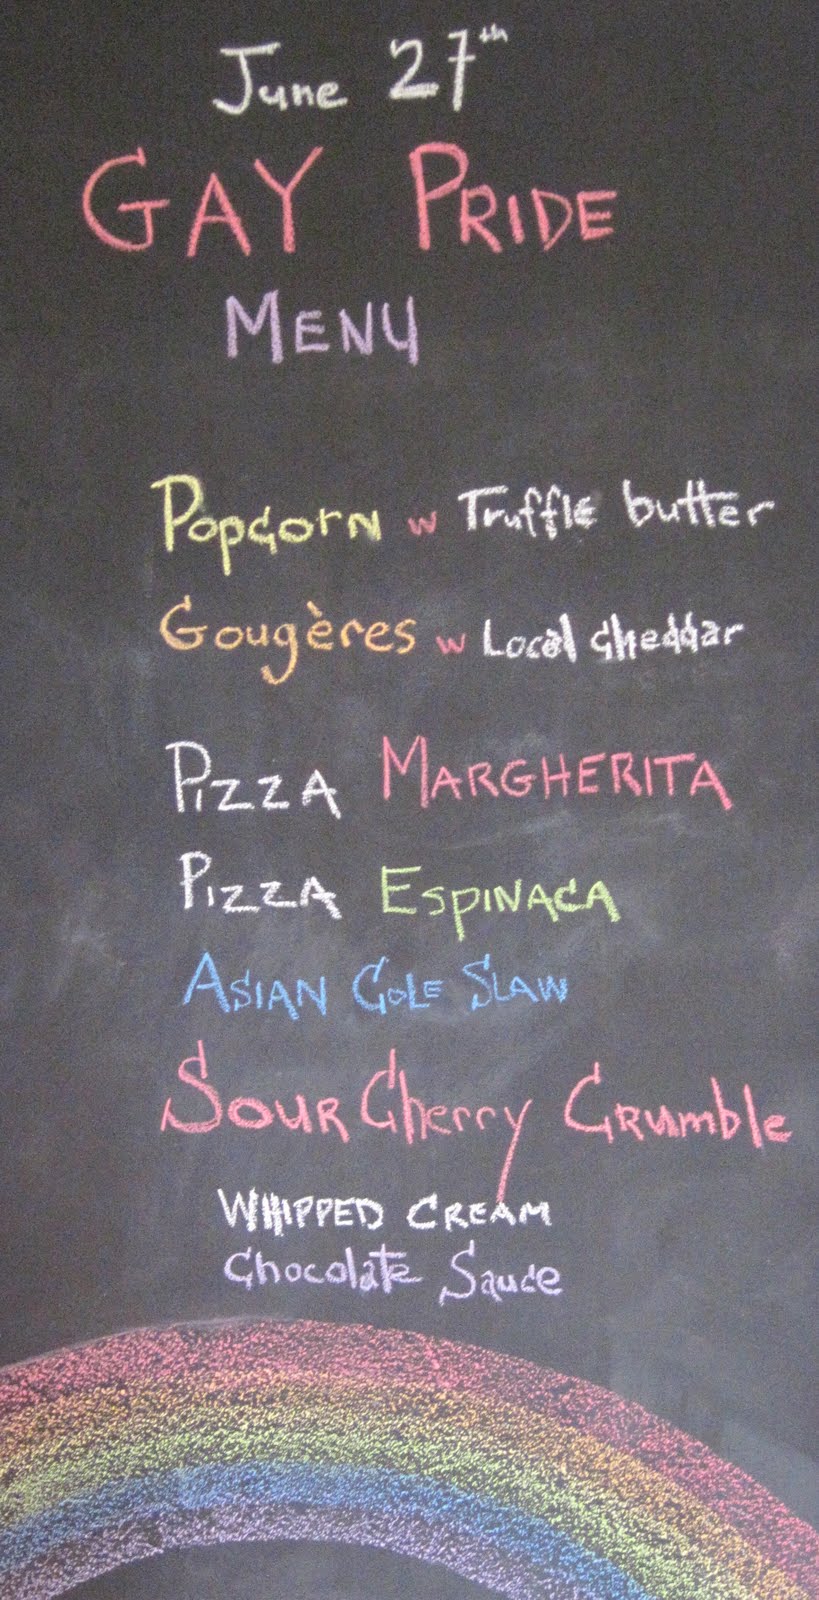 June 27th
GAY PRIDE
MENU
Popcorn w Truffle butter
Gougères w Local cheddar
PIZZA MARGHERITA
PIZZA ESPINACA
ASIAN COLE SLAW
SOUR Cherry Crumble
WHIPPED CREAM
Chocolate Sauce